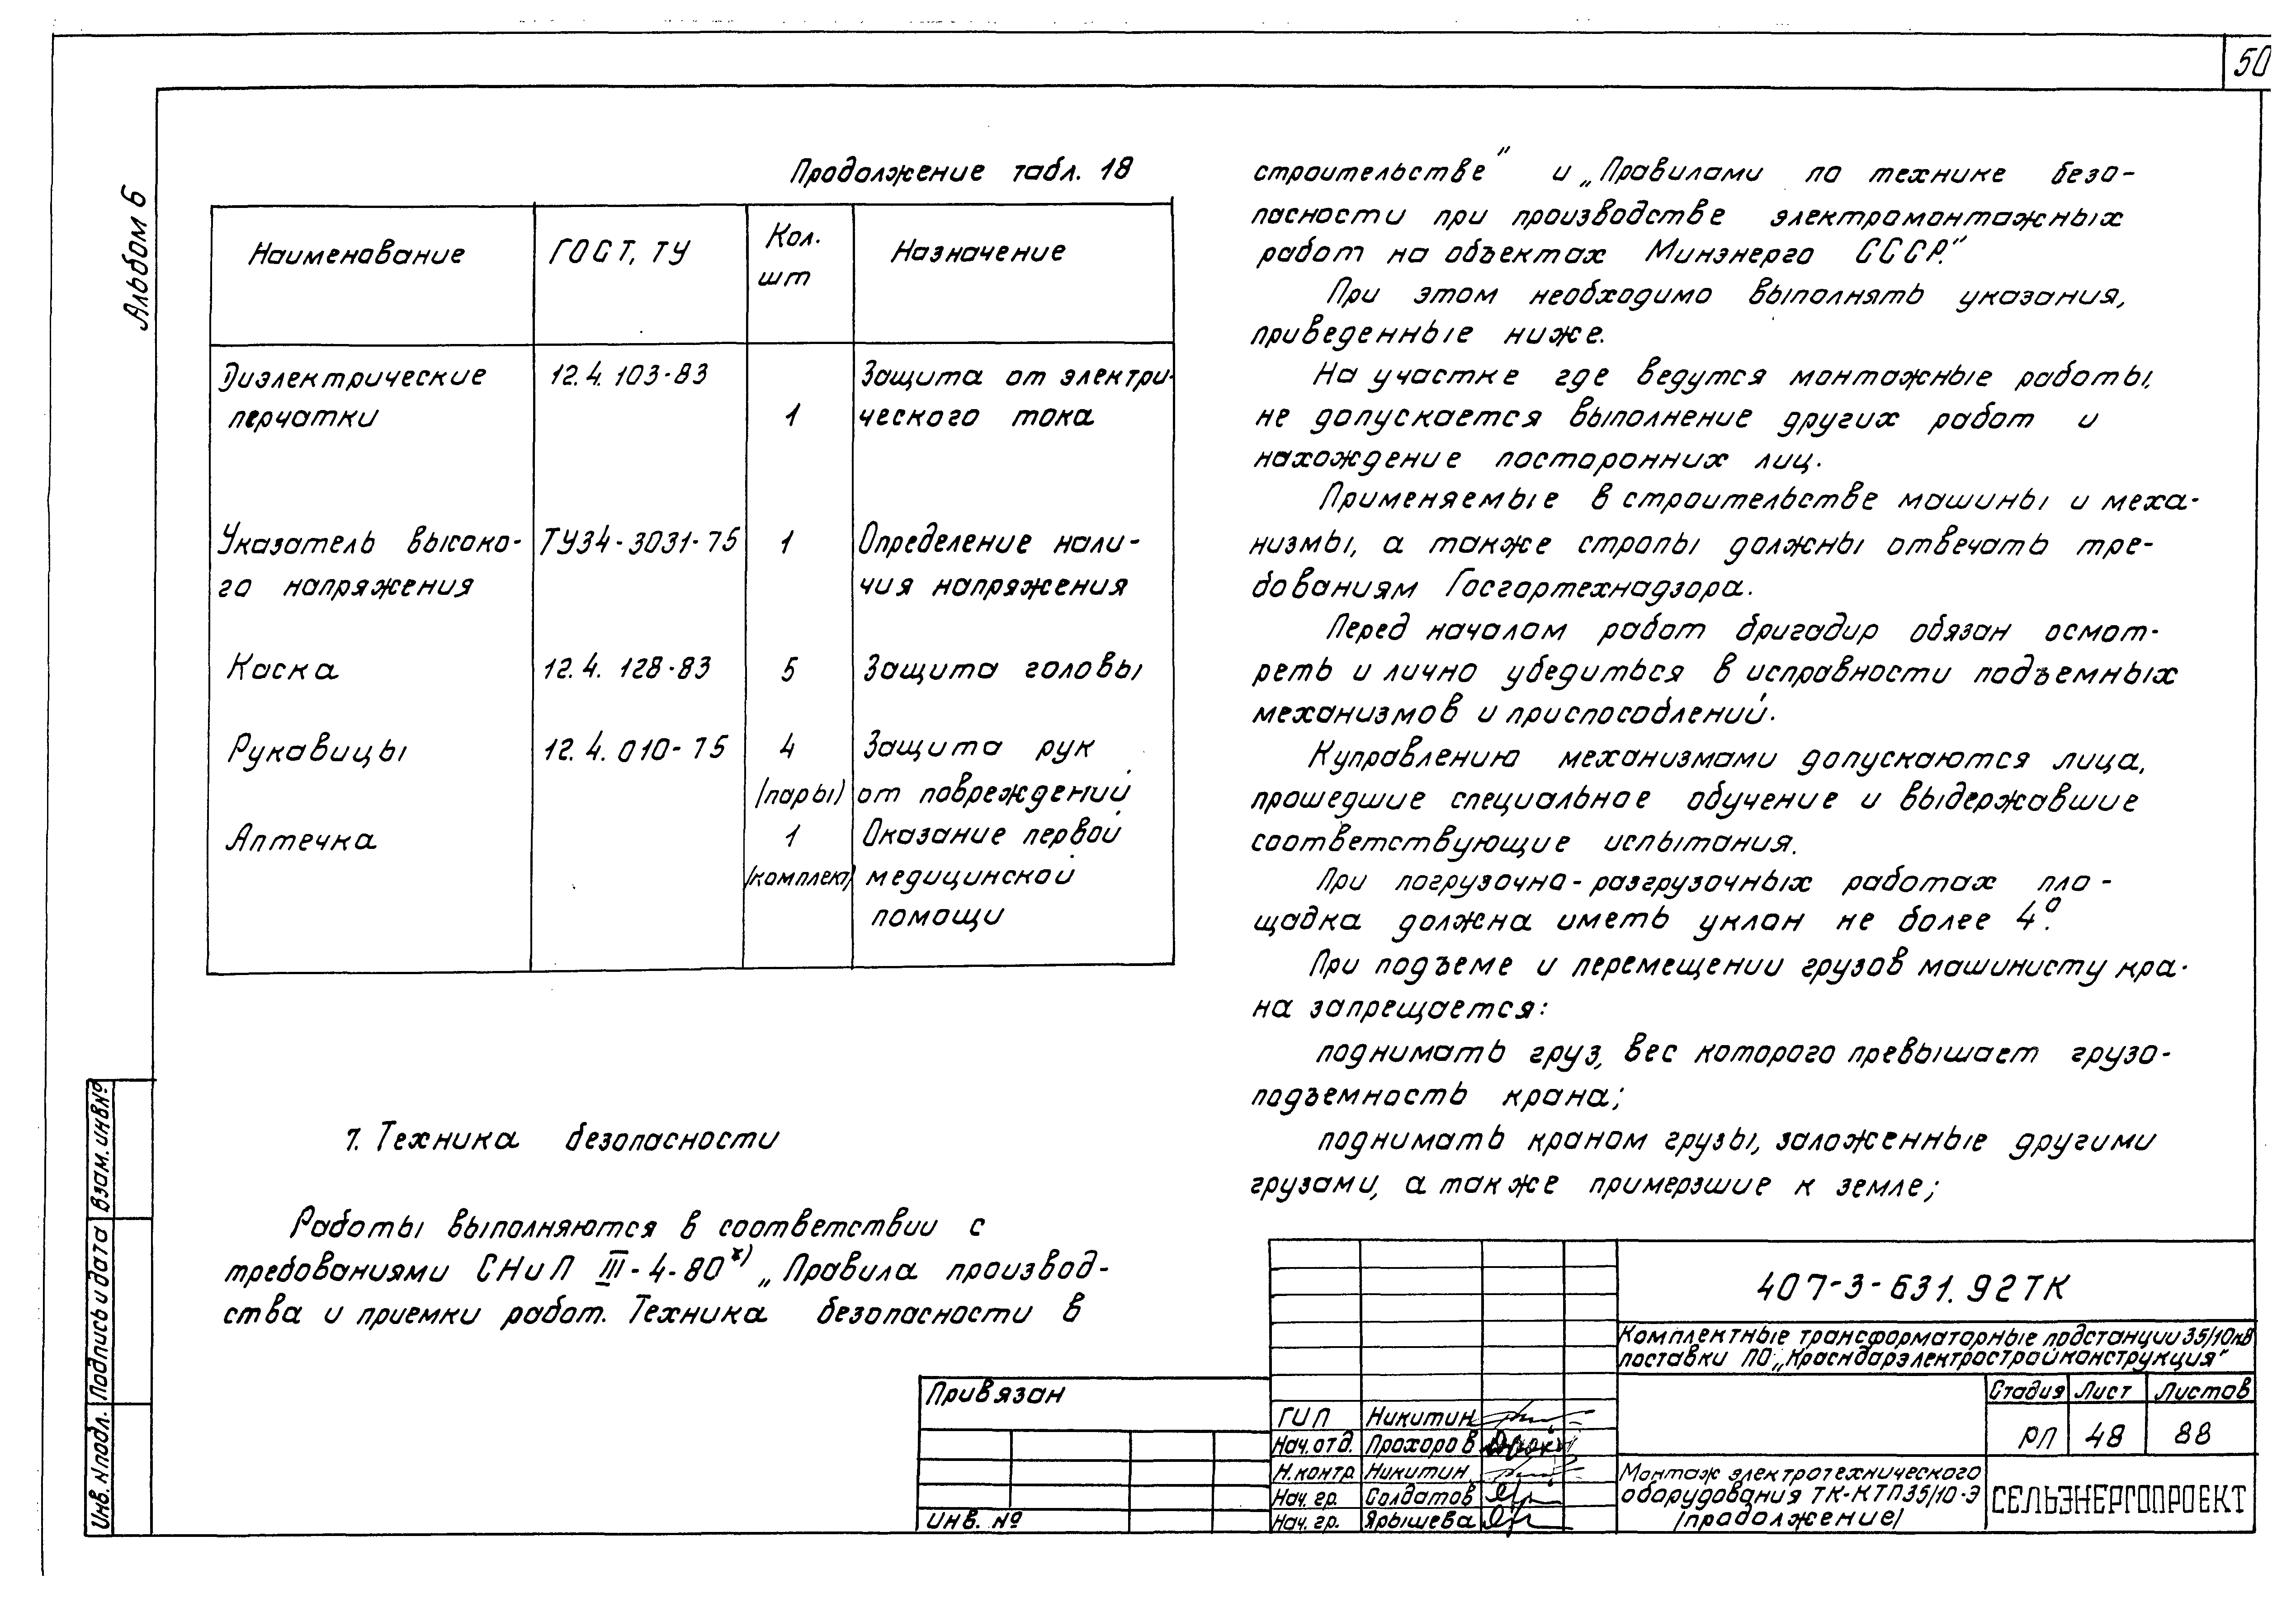 50
Альбом 6
Продолжение табл. 18
Наименование
ГОСТ, ТУ
Кол.
шт
Назначение
Диэлектрические 12.4.103-83 Защита от электри-
перчатки 1 ческого тока
Указатель высоко- ТУ34-3031-75 1 Определение нали-
го напряжения чия напряжения
Каска 12.4.128-83 5 Защита головы
Рукавицы 12.4.010-75 4 Защита рук
/пары) от повреждений
Аптечка 1 Оказание первой
/комплект/ медицинской
помощи
7. Техника безопасности
Работы выполняются в соответствии с
требованиями СНиП III-4-80х) „Правила производ-
ства и приемки работ. Техника безопасности в
строительстве" и „Правилами по технике безо-
пасности при производстве электромонтажных
работ на объектах Минэнерго СССР."
При этом необходимо выполнять указания,
приведенные ниже.
На участке где ведутся монтажные работы,
не допускается выполнение других работ и
нахождение посторонних лиц.
Применяемые в строительстве машины и меха-
низмы, а также стропы должны отвечать тре-
бованиям Госгортехнадзора.
Перед началом работ бригадир обязан осмот-
реть и лично убедиться в исправности подъемных
механизмов и приспособлений.
К управлению механизмами допускаются лица,
прошедшие специальное обучение и выдержавшие
соответствующие испытания.
При погрузочно-разгрузочных работах пло-
щадка должна иметь уклон не более 4°.
При подъеме и перемещении грузов машинисту кра-
на запрещается:
поднимать груз, вес которого превышает грузо-
подъемность крана;
поднимать краном грузы, заложенные другими
грузами, а также примерзшие к земле;
Инв. N подл. Подпись и дата Взам. инв №
Привязан
Инв. №
ГИП Никитин
Нач. отд. Прохоров
Н. контр. Никитин
Нач. гр. Солдатов
Нач. гр. Ярышева
407-3-631.92ТК
Комплектные трансформаторные подстанции 35/10кВ
поставки ПО „Краснодарэлектростройконструкция"
Стадия Лист Листов
РП 48 88
Монтаж электротехнического
оборудования ТК-КТП35/10-Э
/продолжение/
СЕЛЬЭНЕРГОПРОЕКТ